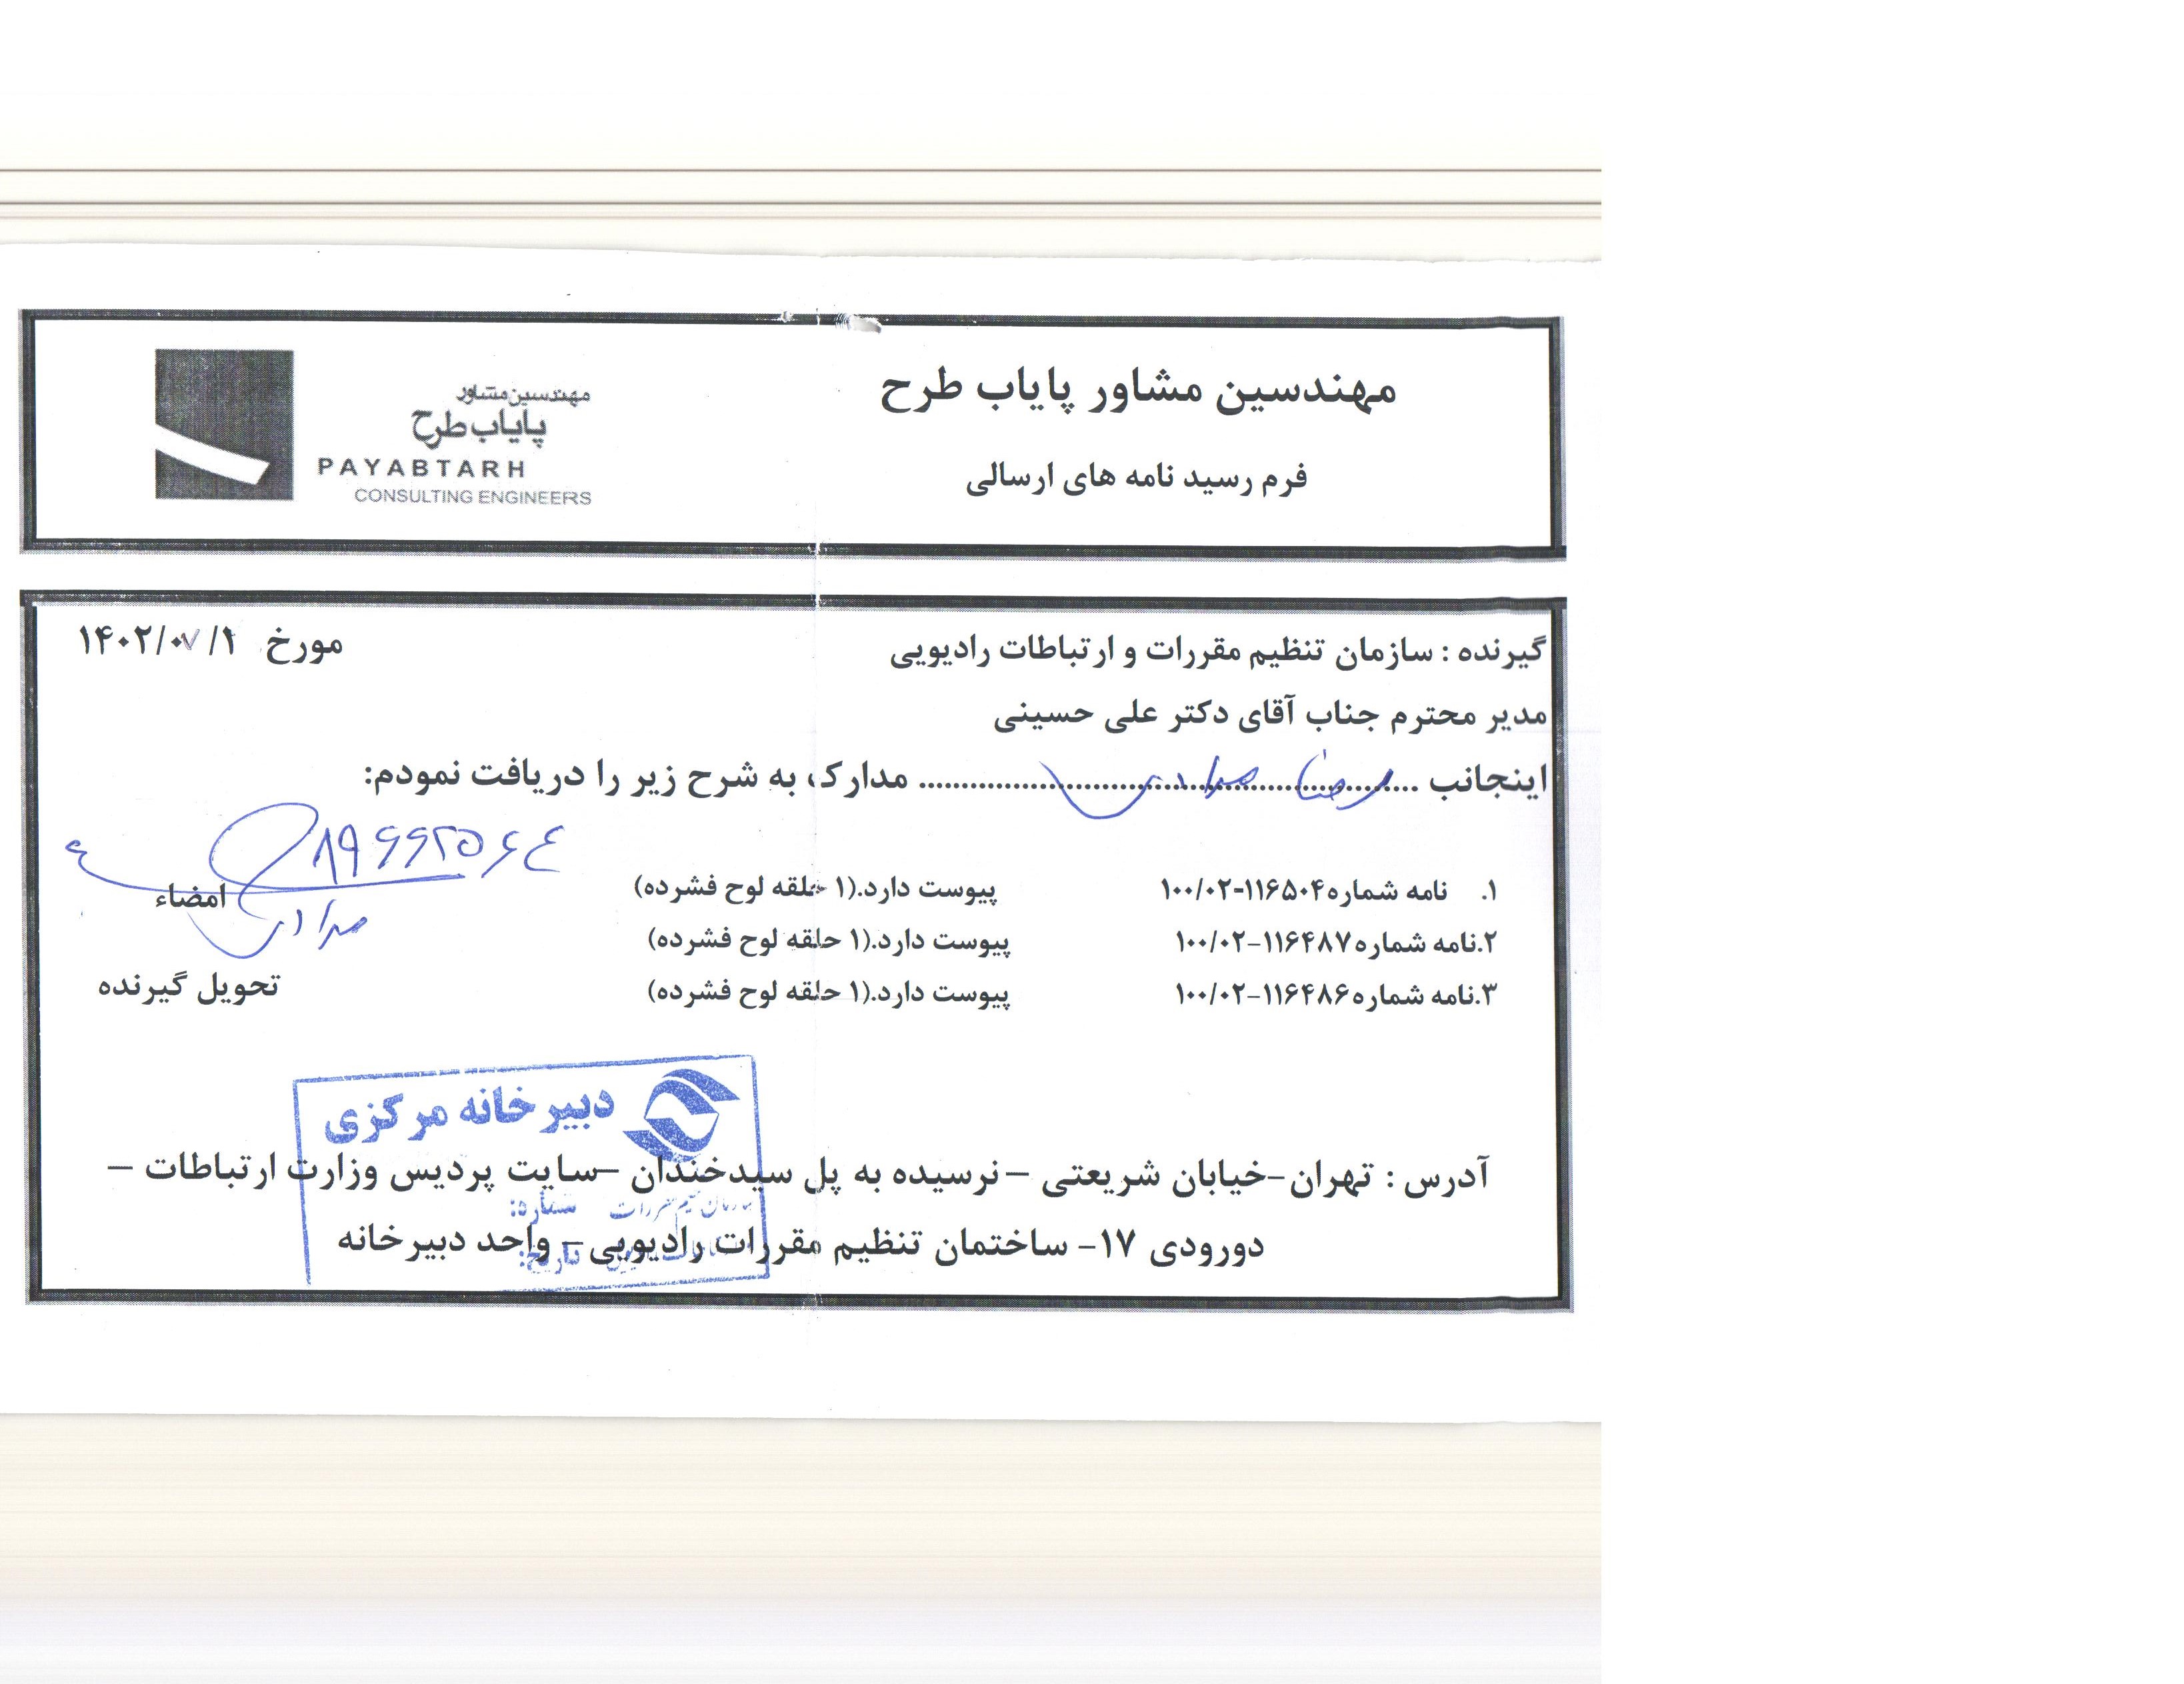 مهندسین مشاور پایاب طرح
فرم رسید نامه های ارسالی
مهندسین مشاور
پایاب طرح
PAYABTARH
CONSULTING ENGINEERS
گیرنده : سازمان تنظیم مقررات و ارتباطات رادیویی
مورخ ۱۴۰۲/۰۷/۱
مدیر محترم جناب آقای دکتر علی حسینی
اینجانب رضا ........................ مدارک به شرح زیر را دریافت نمودم:
۸۹۶۶۲۵۶۴
۱. نامه شماره ۱۱۶۵۰۴-۱۰۰/۰۲ پیوست دارد.(۱ حلقه لوح فشرده)
امضاء
۲.نامه شماره ۱۱۶۴۸۷-۱۰۰/۰۲ پیوست دارد.(۱ حلقه لوح فشرده)
۳.نامه شماره ۱۱۶۴۸۶-۱۰۰/۰۲ پیوست دارد.(۱ حلقه لوح فشرده)
تحویل گیرنده
دبیرخانه مرکزی
آدرس : تهران-خیابان شریعتی –نرسیده به پل سیدخندان –سایت پردیس وزارت ارتباطات –
سازمان تنظیم مقررات شماره:
دورودی ۱۷- ساختمان تنظیم مقررات رادیویی– واحد دبیرخانه
تاریخ: